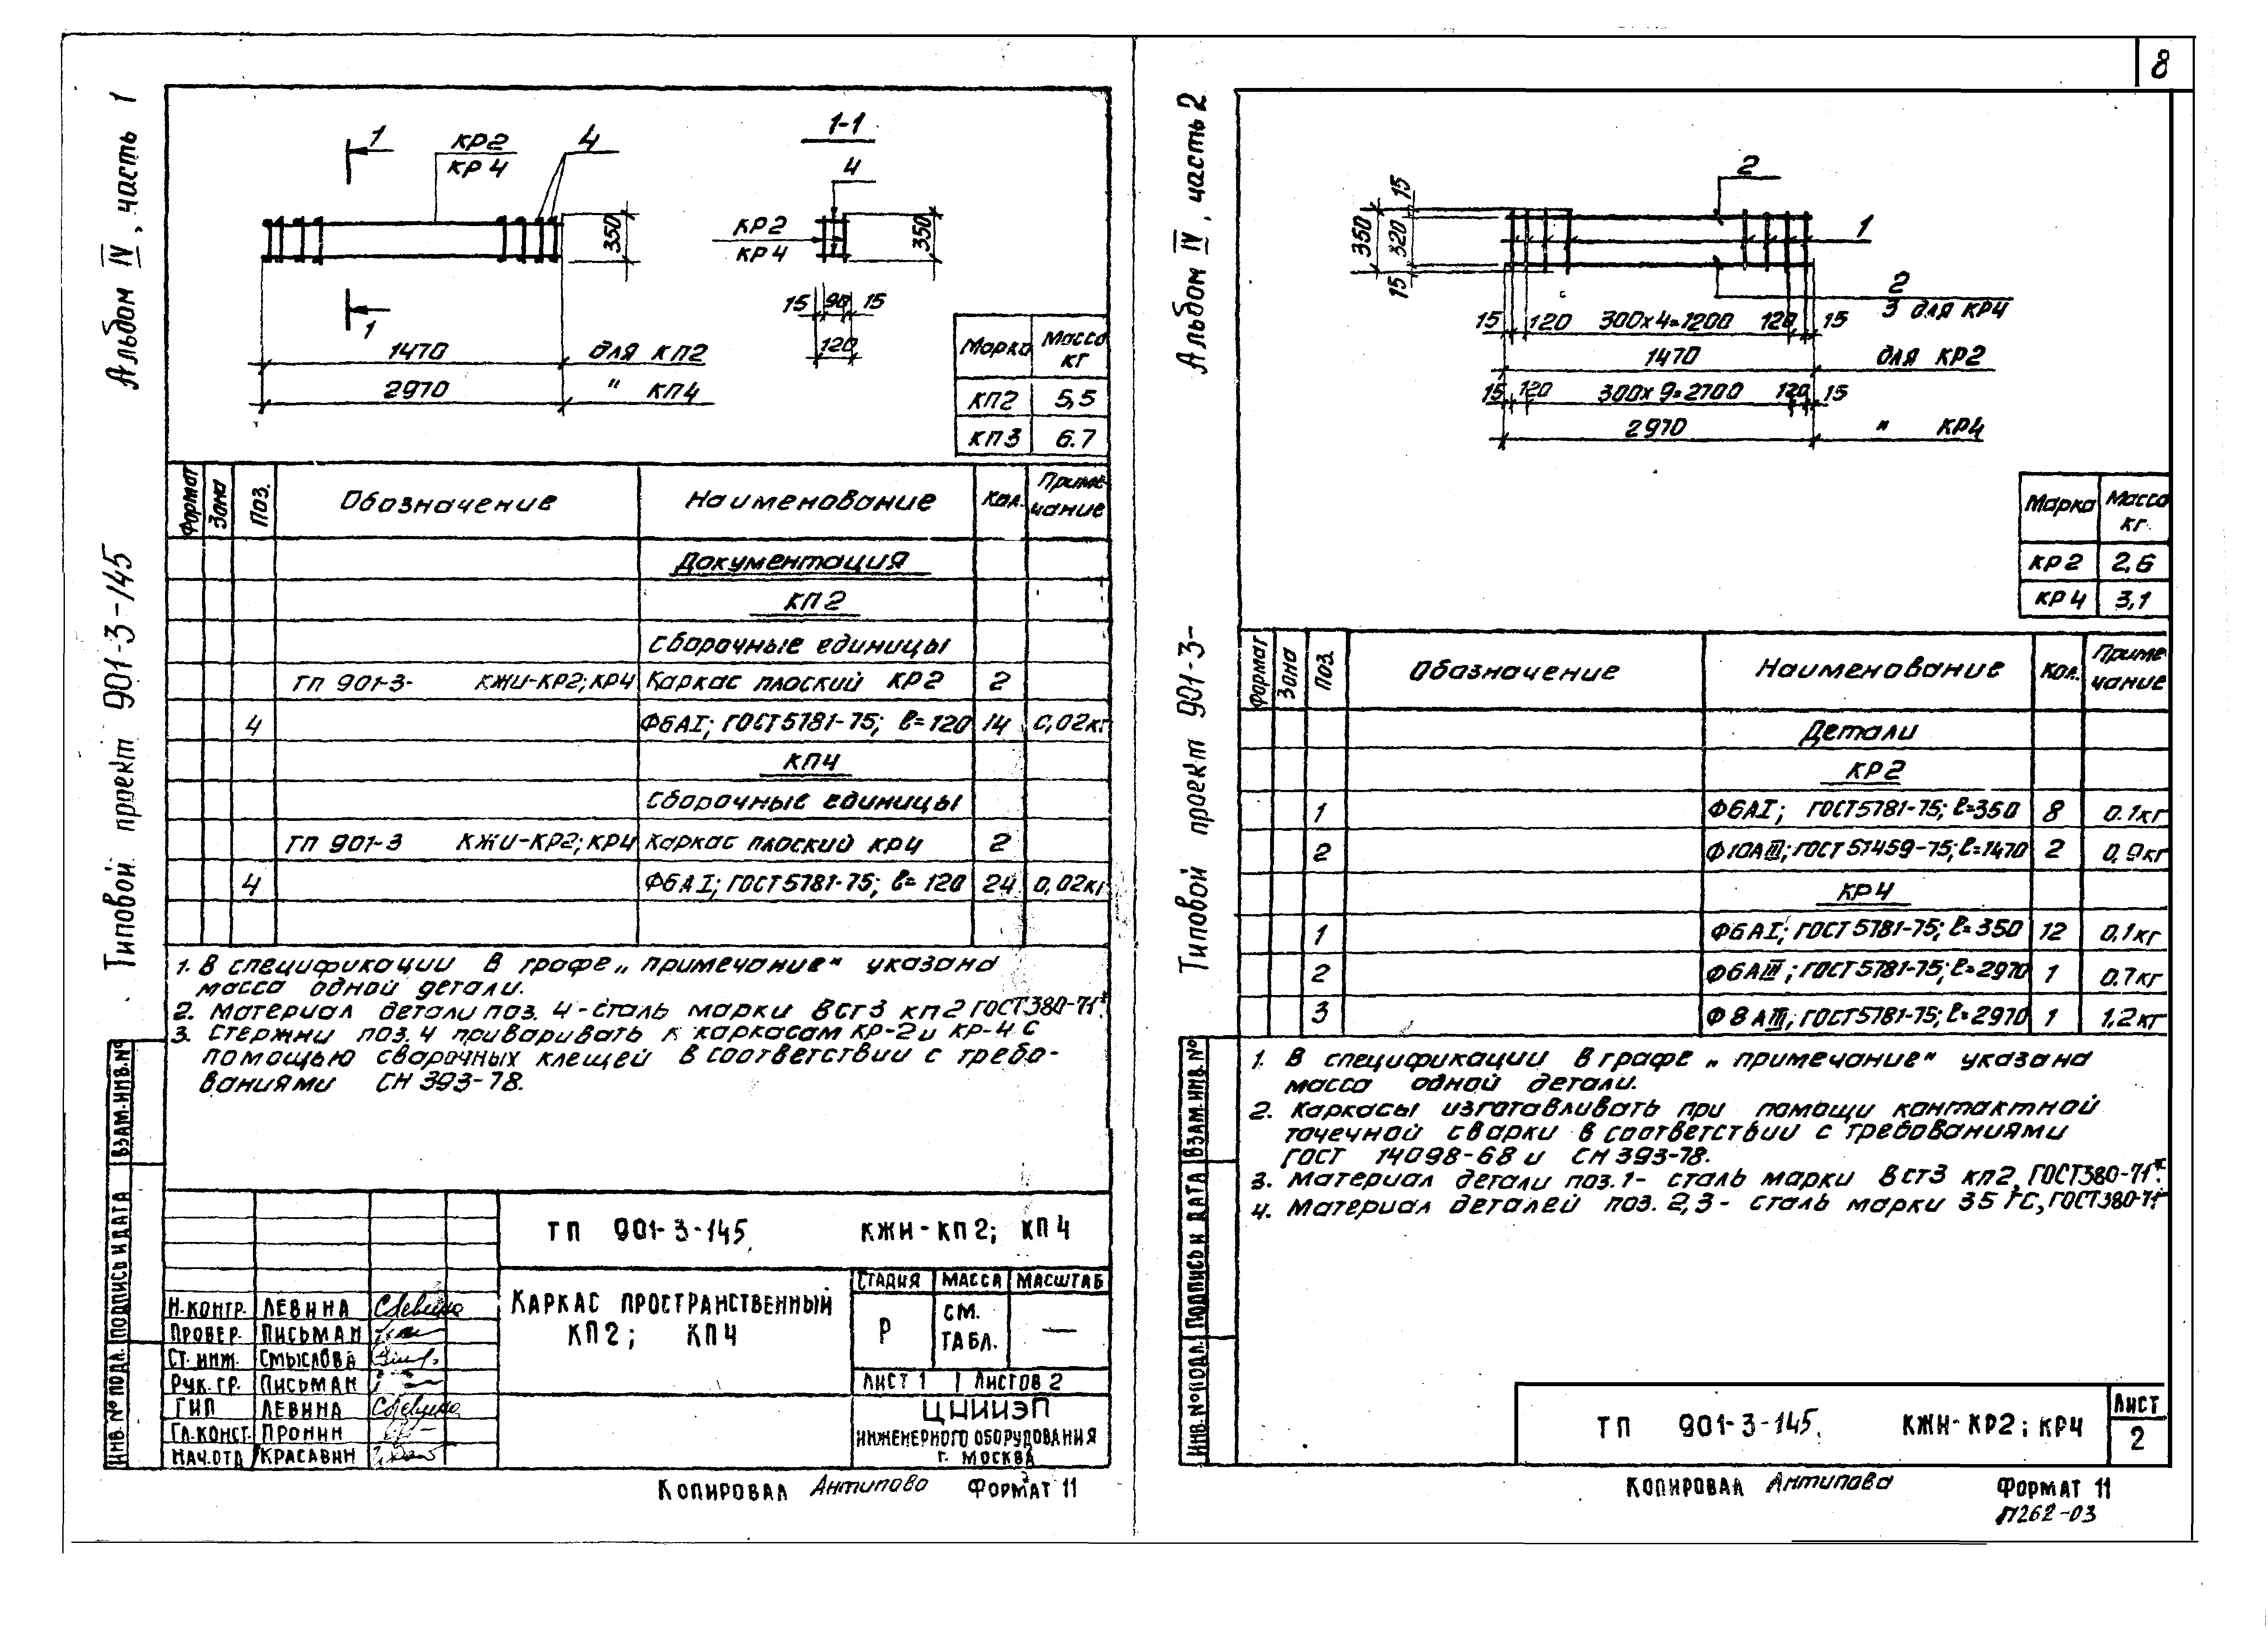 8
Альбом IV, часть 1
Типовой проект 901-3-145
ВЗАМ. ИНВ. №
ПОДПИСЬ И ДАТА
ИНВ. № ПОДЛ.
1
КР2
КР4
4
350
1
1470 для КП2
2970 " КП4
1-1
4
КР2
КР4
350
15 90 15
120
Марка Масса кг
КП2 5,5
КП3 6.7
Формат Зона Поз. Обозначение Наименование Кол. Приме-чание
Документация
КП2
Сборочные единицы
ТП 901-3- КЖИ-КР2; КР4 Каркас плоский КР2 2
4 Ф6АI; ГОСТ 5781-75; ℓ=120 14 0,02кг
КП4
Сборочные единицы
ТП 901-3 КЖИ-КР2; КР4 Каркас плоский КР4 2
4 Ф6АI; ГОСТ 5781-75; ℓ=120 24 0,02кг
1. В спецификации в графе „примечание" указана
масса одной детали.
2. Материал детали поз. 4-сталь марки Вст3 кп2 ГОСТ380-71*.
3. Стержни поз. 4 приваривать к каркасам КР-2 и КР-4 с
помощью сварочных клещей в соответствии с требо-
ваниями СН 393-78.
ТП 901-3-145. КЖИ-КП2; КП4
КАРКАС ПРОСТРАНСТВЕННЫЙ
КП2; КП4
СТАДИЯ МАССА МАСШТАБ
Р СМ. ТАБЛ. —
ЛИСТ 1 ЛИСТОВ 2
ЦНИИЭП
ИНЖЕНЕРНОГО ОБОРУДОВАНИЯ
Г. МОСКВА
Н.КОНТР. ЛЕВИНА
ПРОВЕР. ПИСЬМАН
СТ. ИНЖ. СМЫСЛОВА
РУК. ГР. ПИСЬМАН
ГИП ЛЕВИНА
ГЛ.КОНСТ. ПРОНИН
НАЧ.ОТД КРАСАВИН
КОПИРОВАЛ Антипова ФОРМАТ 11
Альбом IV, часть 2
Типовой проект 901-3-
ВЗАМ. ИНВ. №
ПОДПИСЬ И ДАТА
ИНВ. № ПОДЛ.
2
1
350
15
320
15
2
3 для КР4
15 120 300х4=1200 120 15
1470 для КР2
15 120 300х9=2700 120 15
2970 " КР4
Марка Масса кг.
КР2 2,6
КР4 3,1
Формат Зона Поз. Обозначение Наименование Кол. Приме чание
Детали
КР2
1 Ф6АI; ГОСТ5781-75; ℓ=350 8 0.1кг
2 Ф10АIII; ГОСТ 51459-75; ℓ=1470 2 0,9кг
КР4
1 Ф6АI; ГОСТ 5781-75; ℓ=350 12 0,1кг
2 Ф6АIII; ГОСТ5781-75; ℓ=2970 1 0.7кг
3 Ф8АIII; ГОСТ5781-75; ℓ=2970 1 1,2кг
1. В спецификации в графе „примечание" указана
масса одной детали.
2. Каркасы изготавливать при помощи контактной
точечной сварки в соответствии с требованиями
ГОСТ 14098-68 и СН 393-78.
3. Материал детали поз.1- сталь марки Вст3 кп2, ГОСТ380-71*.
4. Материал деталей поз. 2,3- сталь марки 35 ГС, ГОСТ380-71*
ТП 901-3-145. КЖИ-КР2; КР4
ЛИСТ
2
КОПИРОВАЛ Антипова ФОРМАТ 11
П262-03